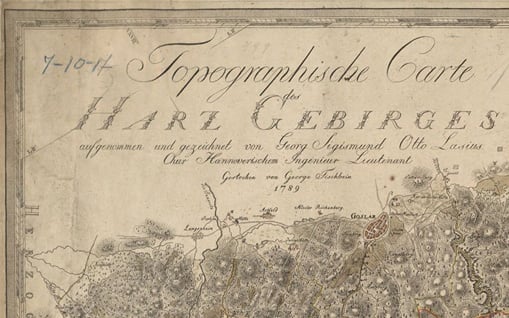 7-10-17
Topographische Carte
des
HARZ GEBIRGES
aufgenommen und gezeichnet von Georg Sigismund Otto Lasius
Chur Hannoverischem Ingenieur Lieutenant
Gestochen von George Tischbein
1789
Kloster Richenberg
GOSLAR
Langesheim
HERZOG